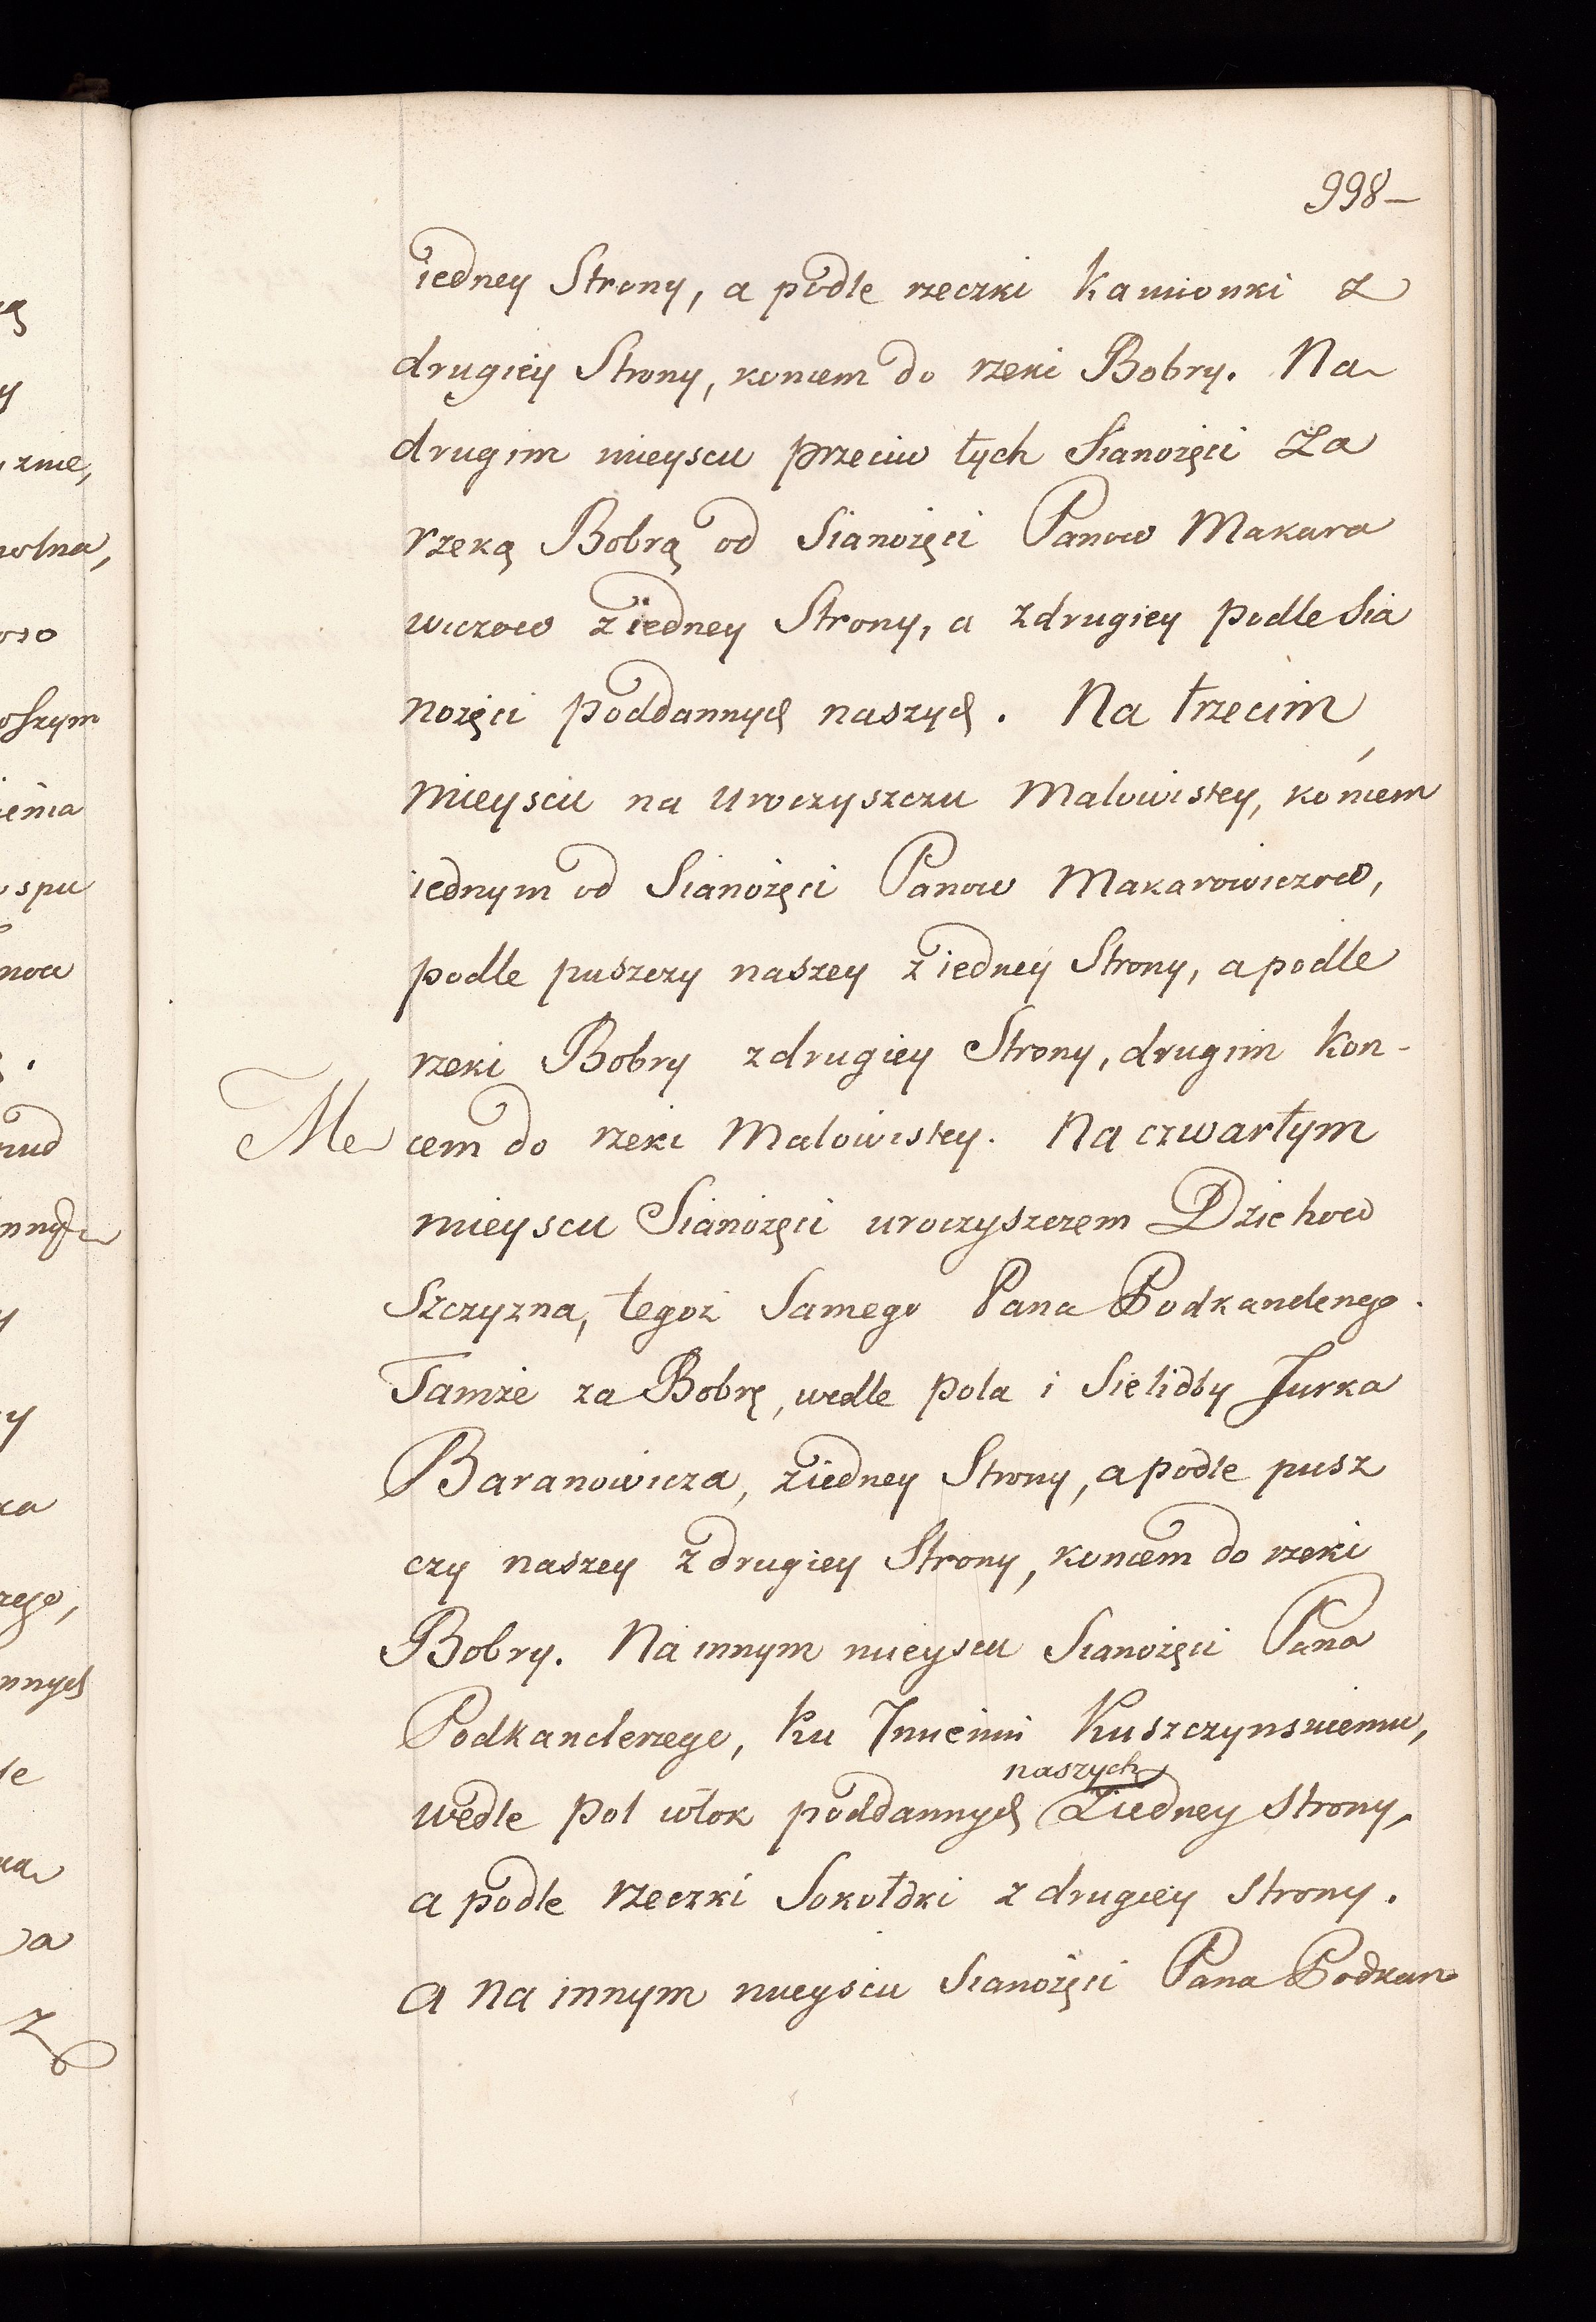 998
iedney Strony, a podle rzeczki Kamionki z
drugiey Strony, koncem do rzeki Bobry. Na
drugim mieyscu przeciw tych Sianożęci za
rzeką Bobrą od Sianożęci Panow Makara
wiczow z iedney Strony, a z drugiey podle Sia
nożęci poddannych naszych. Na trzecim
mieyscu na Uroczyszczu Malowistey, końcem
iednym od Sianożęci Panow Makarowiczow,
podle puszczy naszey z iedney Strony, a podle
rzeki Bobry z drugiey Strony, drugim kon-
cem do rzeki Malowistey. Na czwartym
mieyscu Sianożęci uroczyszczem Dziehow
Szczyzna, tegoż Samego Pana Podkanclerzego.
Tamże za Bobrę, wedle pola i Sielidby Jurka
Baranowicza, z iedney Strony, a podle pusz
czy naszey z drugiey Strony, koncem do rzeki
Bobry. Na innym mieyscu Sianożęci Pana
Podkanclerzego, ku Kuszczynskiemu,
naszych
wedle pol włok poddannych z iedney strony,
a podle rzeczki Sokołdki z drugiey strony.
a na innym mieyscu Sianożęci Pana Podkan